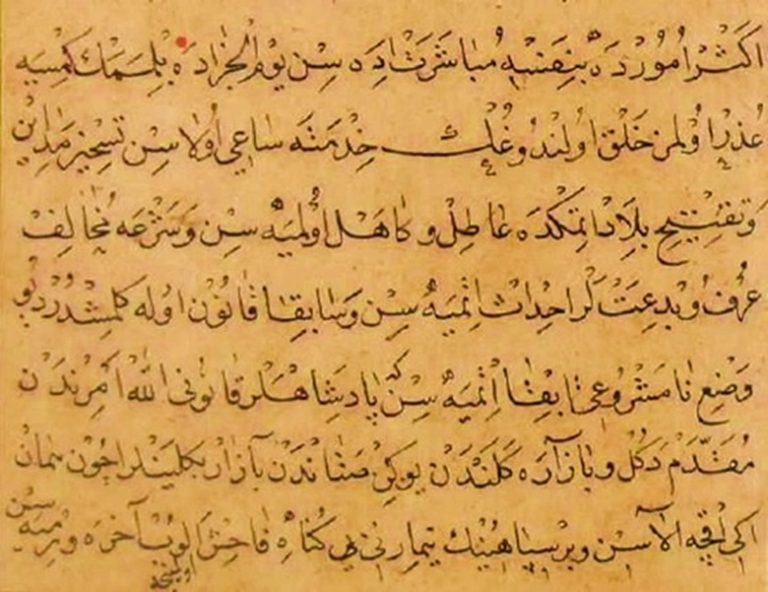 اَكْثَرْ اُمُوُرْدَه بِنِفَسْهِ مُبَاشَرَتْ اِدَه سِنْ يَوْمُ الْجَزَادَه بِلْمَمَكْ كِمْسَيَه
عُذِرْ اُوْلمز خَلْق اُولنْدُوغُڭ خِدْمَتَه سَاعِي اُولَاسِنْ تسْخِيرِ مَدَاينْ
وَتَفْتِيحِ بِلَادْ اِتمكْدَه عَاطِلْ و كَاهَلْ اُولْميَه سِنْ وَشَرْعَه مُخَالِفْ
عُرْفْ وُ بِدْعِتْ لَر اِحْدَاثْ اِتْميَه سِنْ وَسَابِقَا قَانُوُنْ اوُله كَلمِشْدُرْ دِيُو
وَضْعِ نَا مَشْرُوُعِي اِبِقْا اِتْميَه سِنْ كه پَادِشَاهْلَرْ قَانُونِي اللّٰهْ اَمْرِنْدَنْ
مُقَدَّمْ دَكُلْ و بَازَارَه كَلَنْدَنْ يوكِنْ صَتَانْدَنْ بَازَارْ بكلينلر اچُونْ
اكي اَقچه اَلَاسِنْ و بِرْ سِپَاهِينُڭ تيمارِني بي كُنَاهِ فَاحِشْ آلوُبْ آخَرَه وِرْميَه سِنْ
اولمينجه